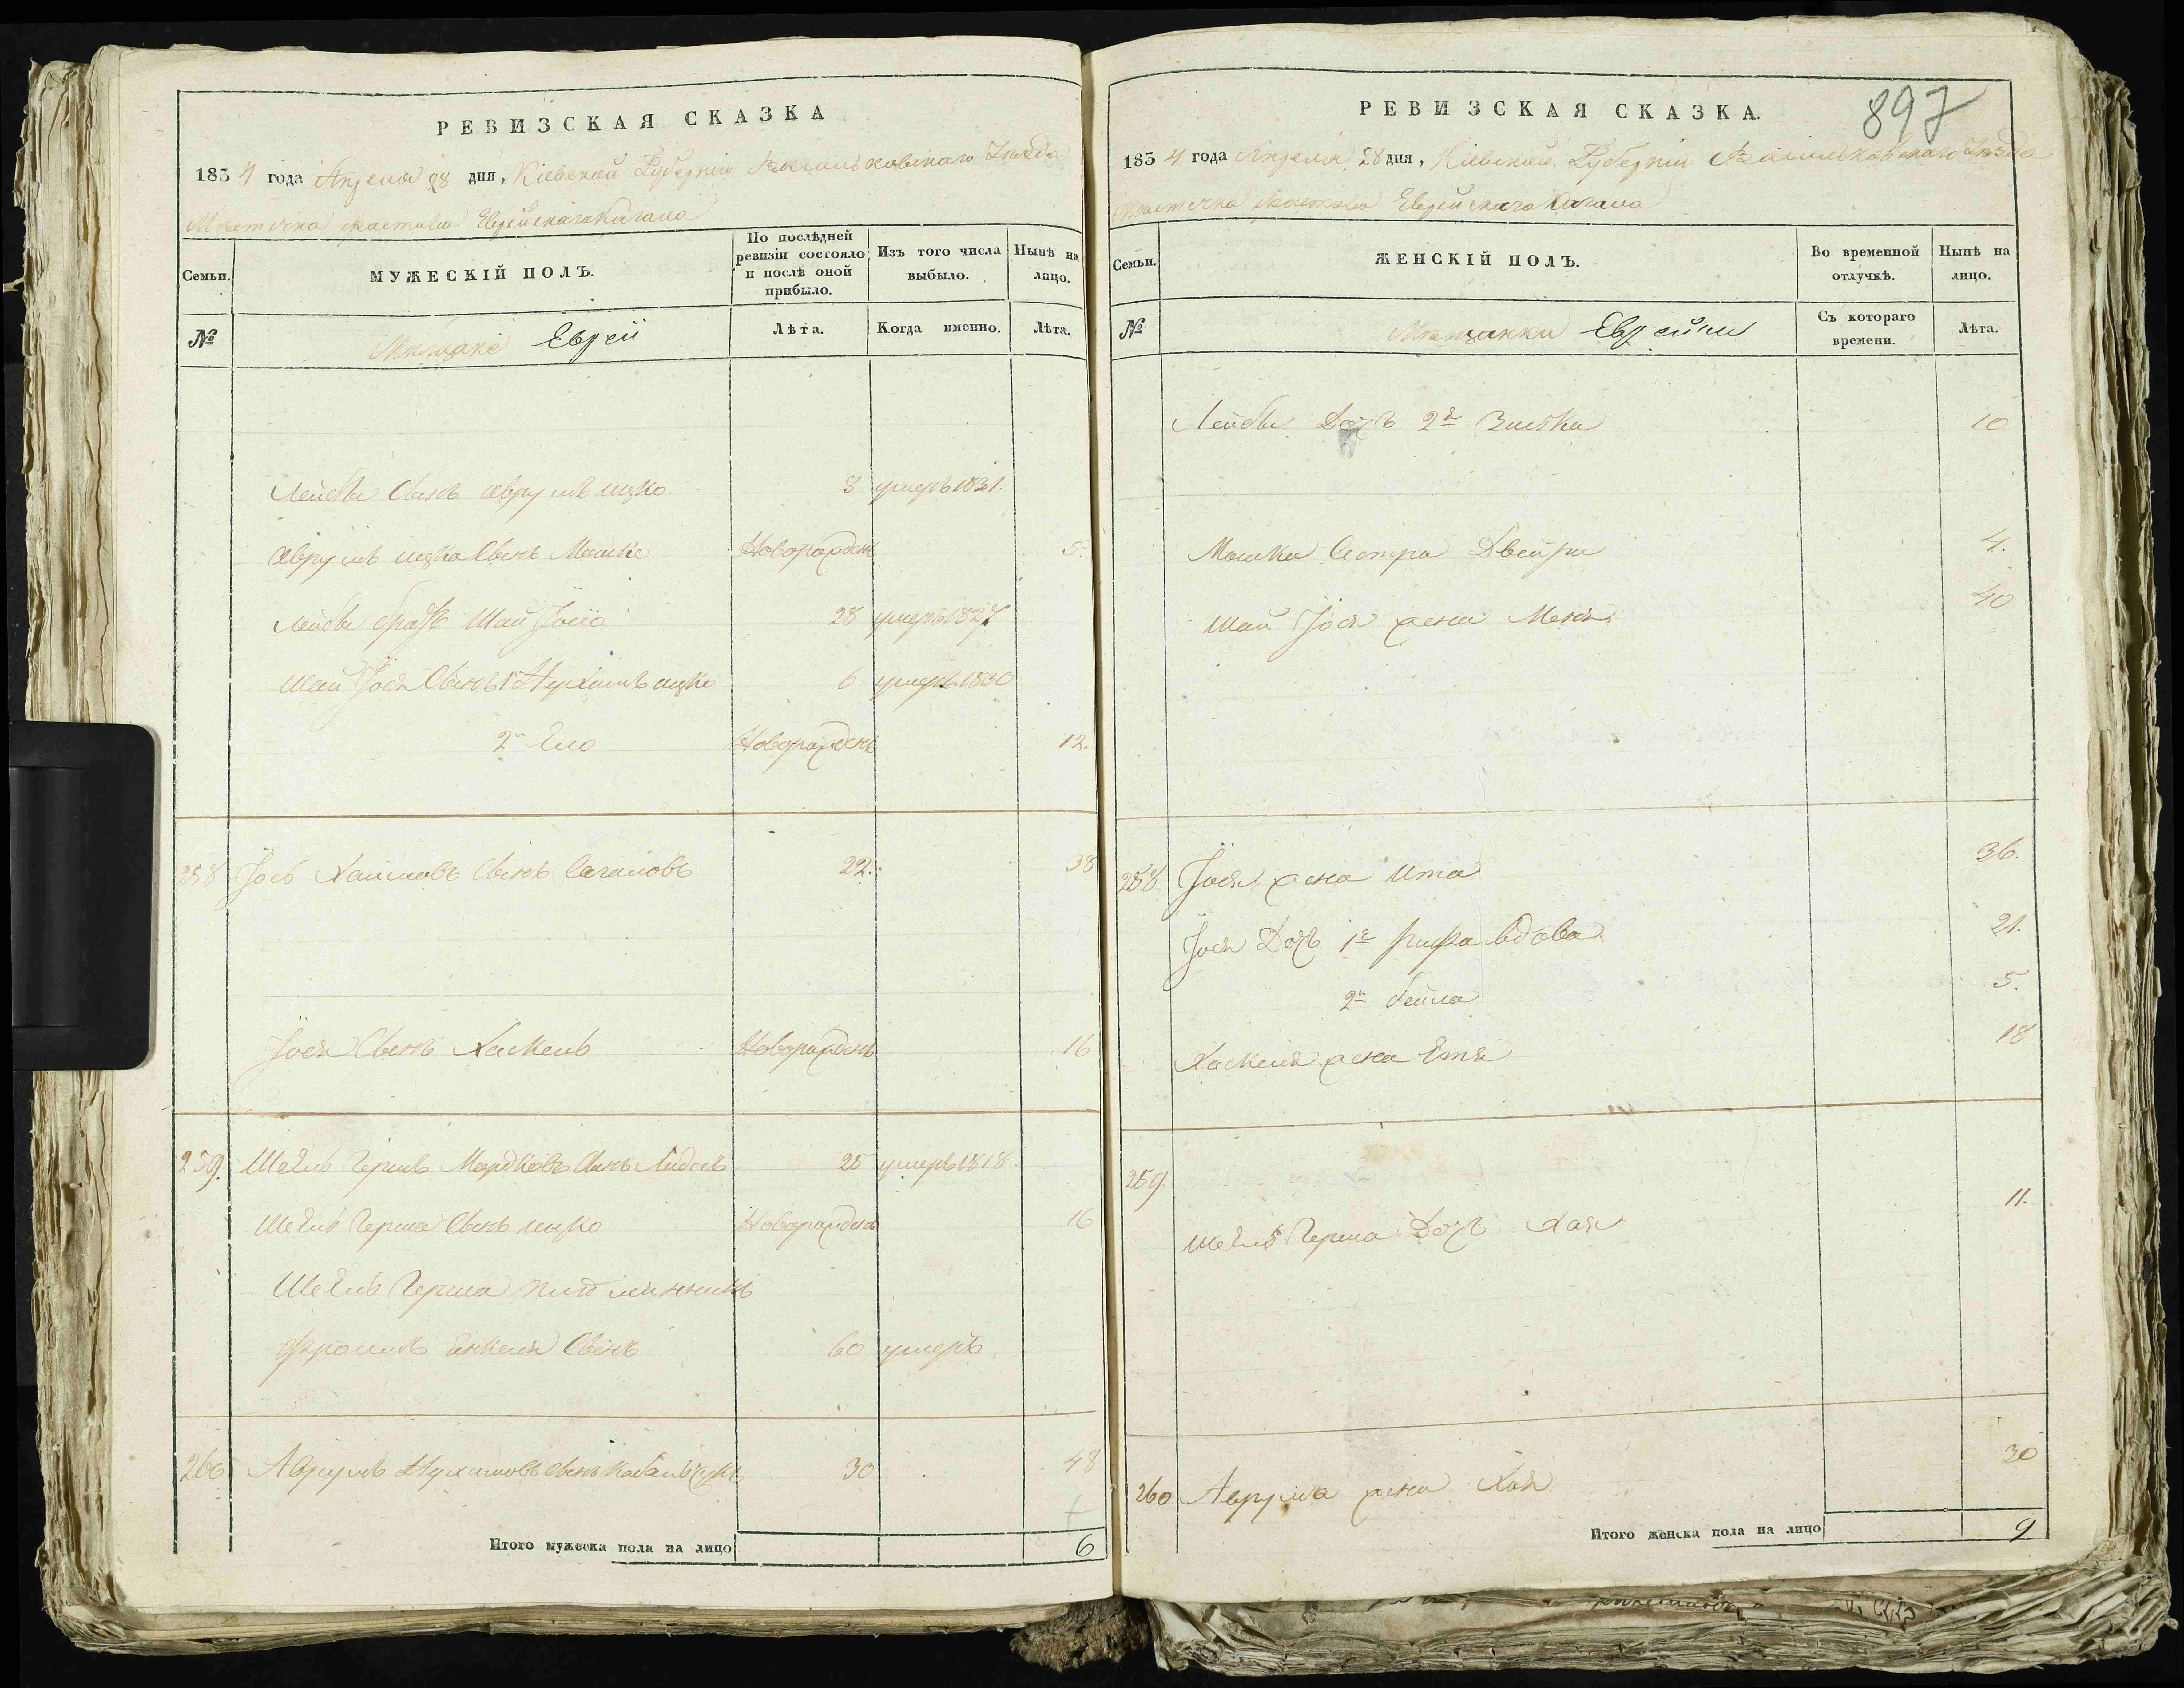 РЕВИЗСКАЯ СКАЗКА
1834 года Апреля 28 дня, Кіевской Губерніи Васильковскаго Уѣзда
Мѣстечка Фастова Еврейскаго Кагала
Семьи.
МУЖЕСКІЙ ПОЛЪ.
По послѣдней ревизіи состояло и послѣ оной прибыло.
Изъ того числа выбыло.
Нынѣ на лицо.
№
Мѣщане Евреи
Лѣта.
Когда именно.
Лѣта.
Лейбы Сынъ Аврумъ ицко 8 умеръ 1831.
Аврумъ ицка Сынъ Мошко Новорожденъ 5.
Лейбы братъ Шай Іосіо 28 умеръ 1827
Шай Іося Сынъ 1й Нухимъ ицко 6 умеръ 1830
2й Ело Новорожденъ 12.
258 Іось Хаимовъ Сынъ 22. 38
Іося Сынъ Хаскель Новорожденъ 16
259. Гершъ Мордковъ Сынъ 25 умеръ 1818.
Герша Сынъ ицко Новорожденъ 16
Герша
Сынъ 60 умеръ
260 Аврумъ Нухимовъ Сынъ 30 48
Итого мужеска пола на лицо 6
897
РЕВИЗСКАЯ СКАЗКА.
1834 года Апреля 28 дня, Кіевской Губерніи Васильковскаго Уѣзда
Мѣстечка Фастова Еврейскаго Кагала
Семьи.
ЖЕНСКІЙ ПОЛЪ.
Во временной отлучкѣ.
Нынѣ на лицо.
№
Мѣщанки Еврейки
Съ котораго времени.
Лѣта.
Лейбы Дочь 2я 10
Мошка Сестра Двейра 4.
Шай Іося жена Меня 40
258 Іося жена Ита 36.
Іося Дочь 1я вдова 21.
2я Бейла 5.
Хаскеля жена Етя 18
259.
Герша Дочь Хая 11.
260 Аврума жена Хая 30
Итого женска пола на лицо 9